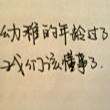 幼稚的年龄过了
我们该懂事了